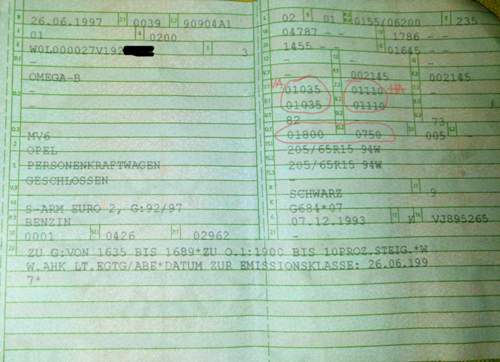 26.06.1997 0039 90904A1
01 0200
W0L000027V192 3
-
OMEGA-B
-
-
MV6
OPEL
PERSONENKRAFTWAGEN
GESCHLOSSEN
S-ARM EURO 2, G:92/97
BENZIN
0001 0426 02962
02 01 0155/06200 235
04787 - - 1786 - -
1455 - - 01645
- 002145 002145
VA 01035 01110 HA
01035 01110
82 73
01800 0750 005 -
205/65R15 94W
205/65R15 94W
-
SCHWARZ 9
G684*07
07.12.1993 VJ895265
-
ZU G:VON 1635 BIS 1689*ZU O.1:1900 BIS 10PROZ.STEIG.*W
W.AHK LT.EGTG/ABE*DATUM ZUR EMISSIONSKLASSE: 26.06.199
7*